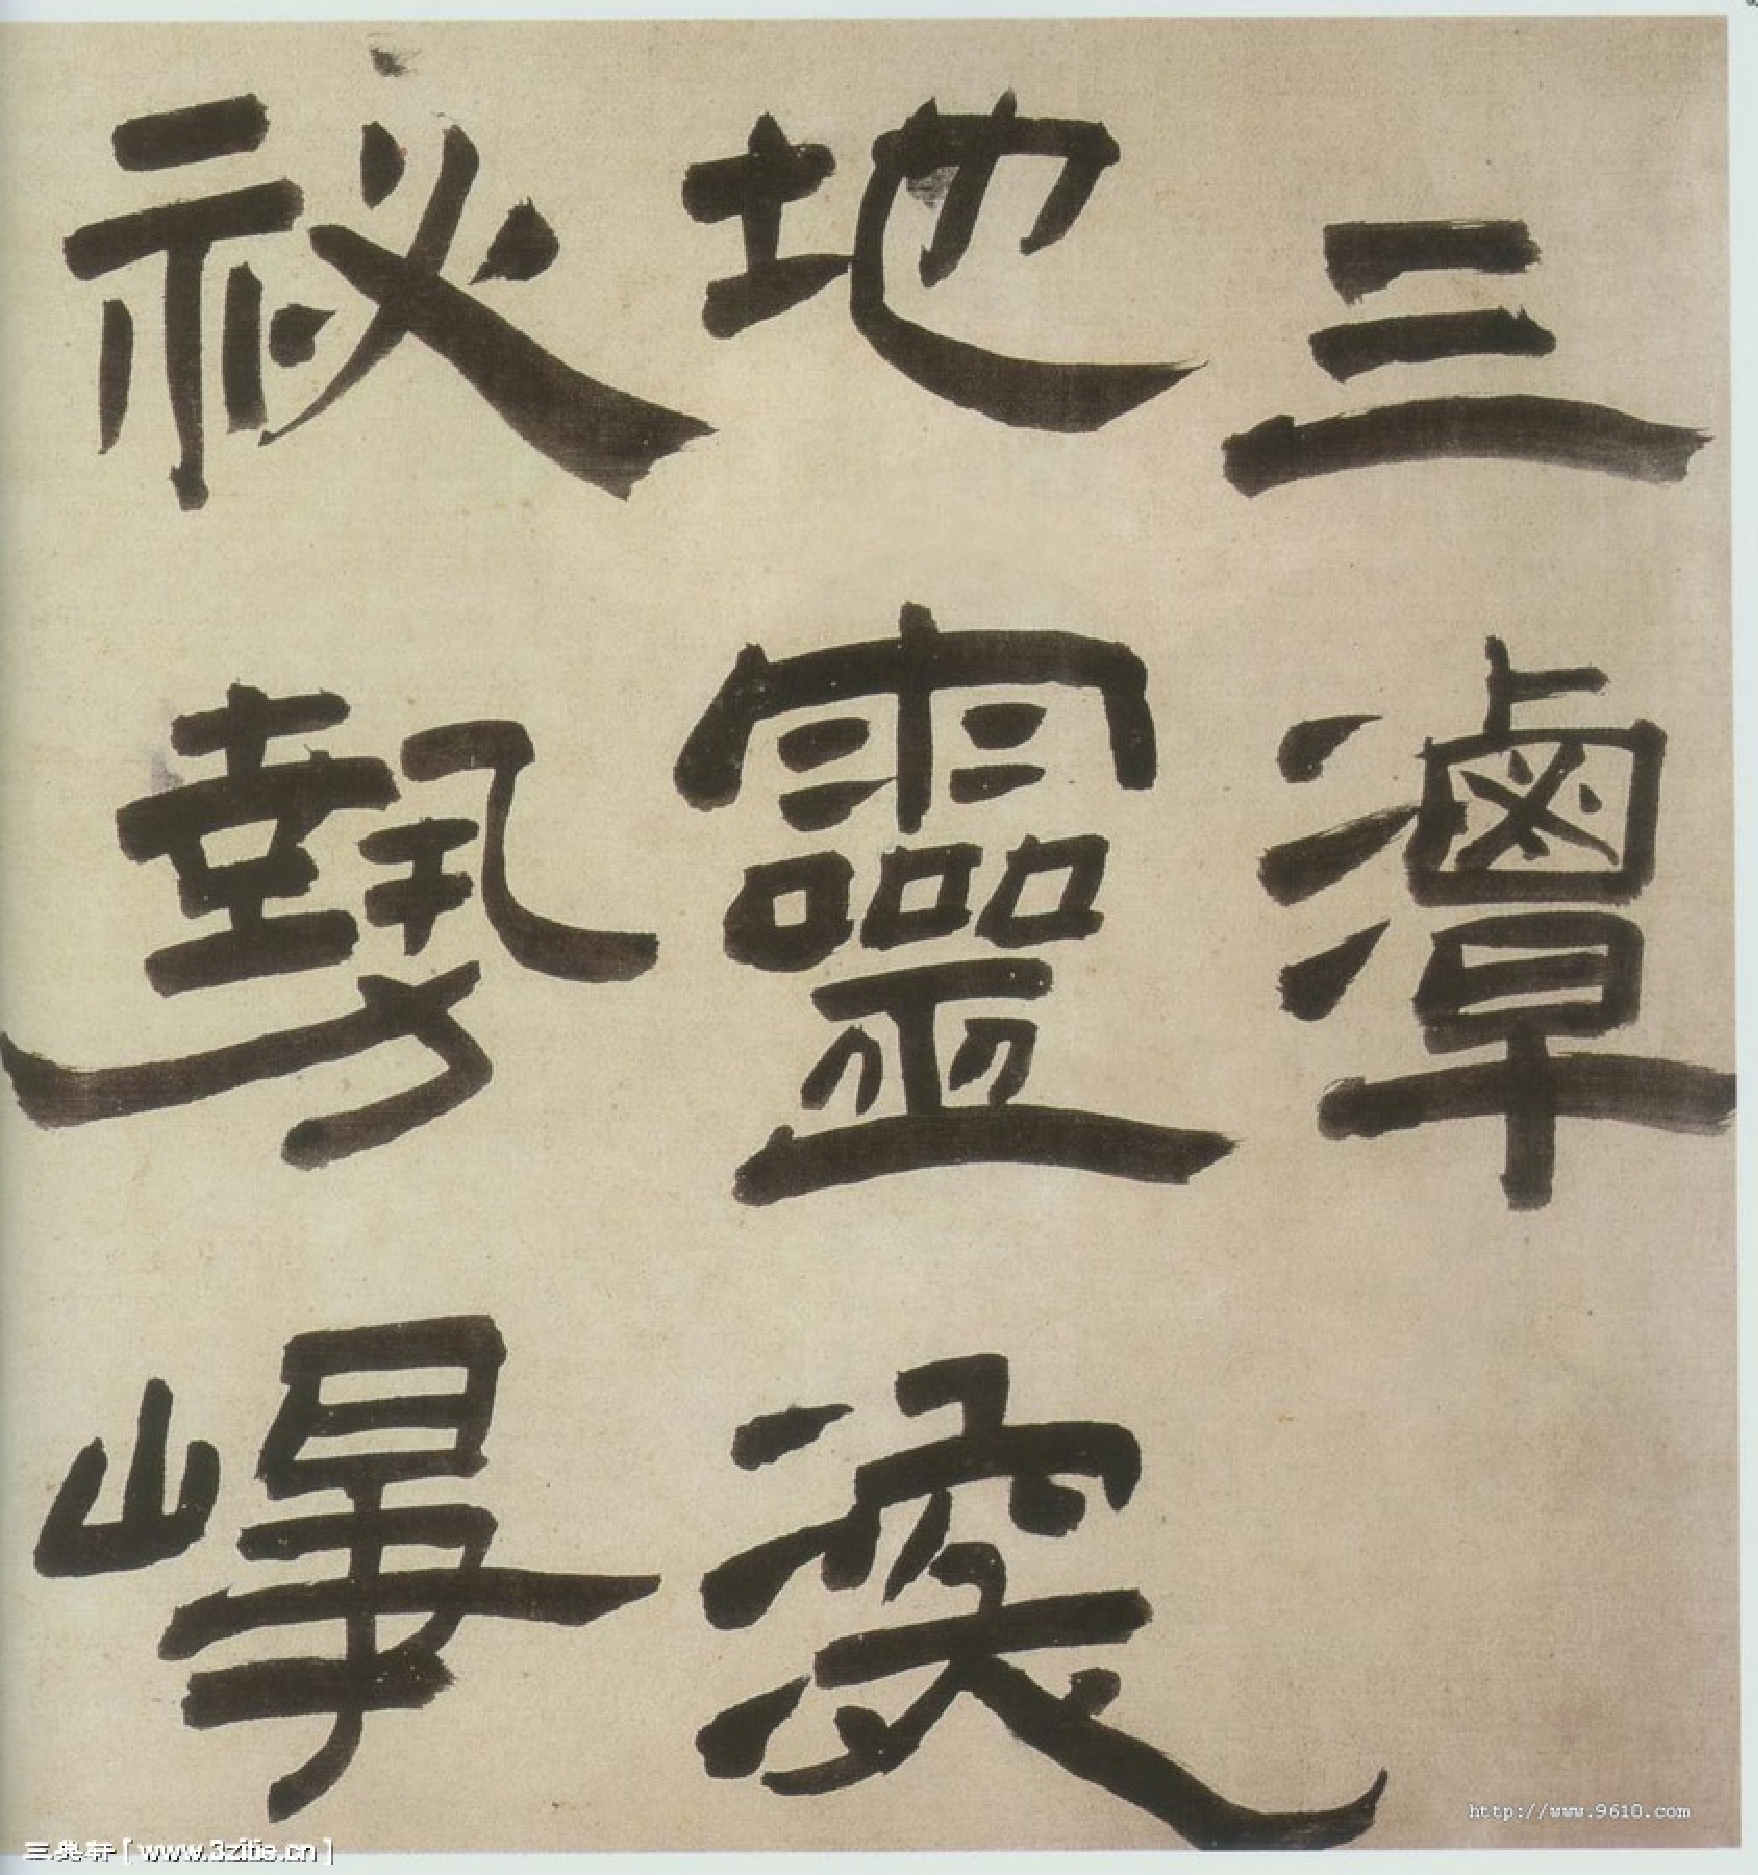 三潭
地靈深
祕勢崢
http://www.9610.com
三典轩 [ www.3zitie.cn ]